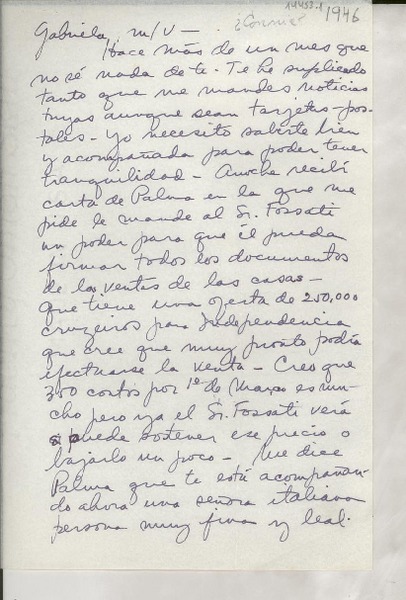 19453-1 1946
¿Connie?
Gabriela, m/v —
Hace más de un mes que
no sé nada de ti. Te he suplicado
tanto que me mandes noticias
tuyas aunque sean tarjetas pos-
tales — Yo necesito saberte bien
y acompañada para poder tener
tranquilidad — Anoche recibí
carta de Palma en la que me
pide le mande al Sr. Fossati
un poder para que él pueda
firmar todos los documentos
de las ventas de las casas —
que tiene una oferta de 250,000
cruzeiros para Independencia
que cree que muy pronto podía
efectuarse la venta — Creo que
300 contos por 1º de Março es mu-
cho pero ya el Sr. Fossati verá
puede sostener ese precio o
bajarlo un poco — Me dice
Palma que te está acompañan-
do ahora una señora italiana
persona muy fina y leal.